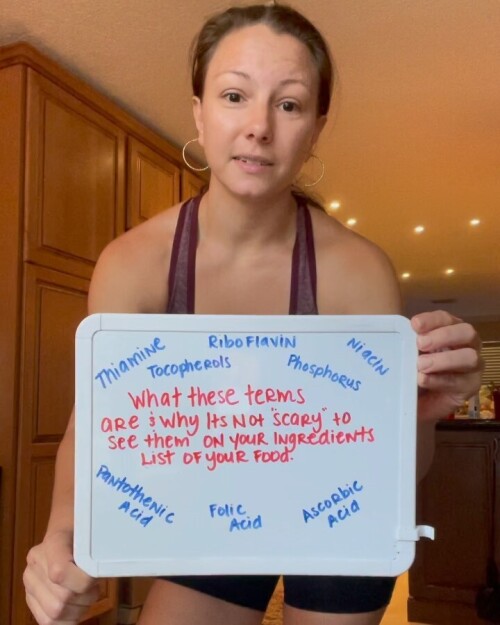 Thiamine
RiboFlavin
Niacin
Tocopherols
Phosphorus
What these terms
are & why Its Not "scary" to
see them on your Ingredients
List of your Food.
Pantothenic
Acid
Folic
Acid
Ascorbic
Acid